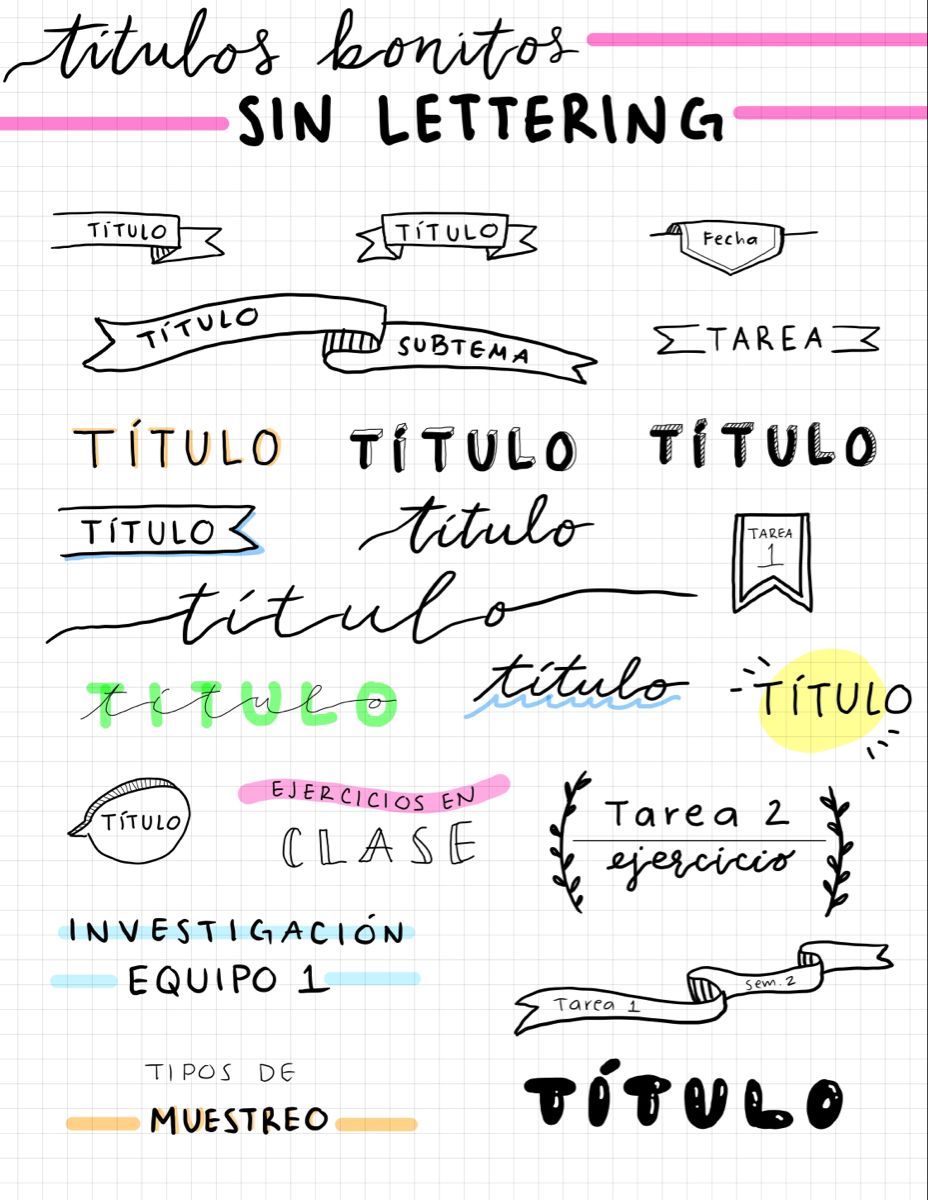 títulos bonitos
SIN LETTERING
TÍTULO
TÍTULO
Fecha
TÍTULO
SUBTEMA
TAREA
TÍTULO
TÍTULO
TÍTULO
TÍTULO
título
TAREA
1
título
TITULO
título
título
TÍTULO
TÍTULO
EJERCICIOS EN
CLASE
Tarea 2
ejercicio
INVESTIGACIÓN
EQUIPO 1
Tarea 1
sem. 2
TIPOS DE
MUESTREO
TÍTULO